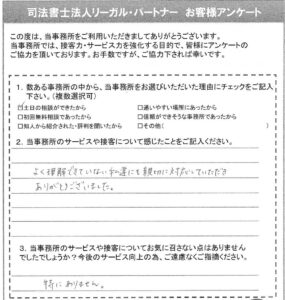 司法書士法人リーガル・パートナー お客様アンケート
この度は、当事務所をご利用いただきましてありがとうございます。
当事務所では、接客力・サービス力を強化する目的で、皆様にアンケートの
ご協力を頂いております。お手数ですが、ご協力下されば幸いです。
1. 数ある事務所の中から、当事務所をお選びいただいた理由にチェックをご記入
下さい。(複数選択可)
□土日の相談ができたから □通いやすい場所にあったから
□初回無料相談であったから □信頼ができそうな事務所であったから
□知人から紹介された・評判を聞いたから □その他( )
2. 当事務所のサービスや接客について感じたことをご記入ください。
よく理解できていない私達にも親切に対応していただき
ありがとうございました。
3. 当事務所のサービスや接客についてお気に召さない点はありません
でしたでしょうか?今後のサービス向上の為、ご遠慮なくご指摘ください。
特にありません。